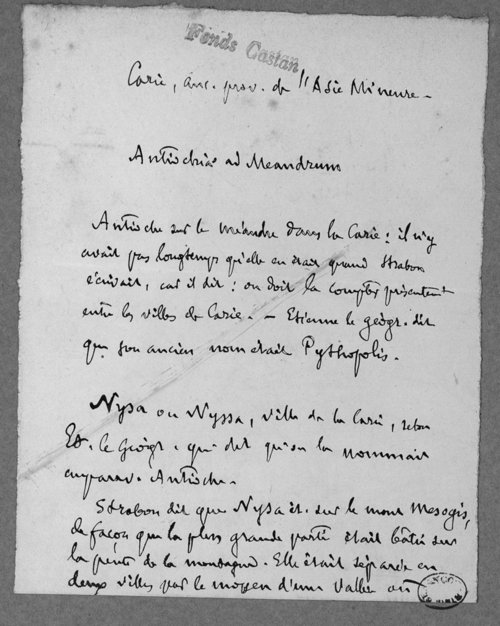 Fonds Castan
Carie, anc. prov. de l'Asie Mineure -
Antiochia ad Meandrum
Antioche sur le méandre dans la Carie : il n'y
avait pas longtemps qu'elle en était quand Strabon
écrivait, car il dit : on doit la compter présentement
entre les villes de Carie. - Etienne le géogr. dit
que son ancien nom était Pythopolis.
Nysa ou Nyssa, ville de la Carie, selon
Et. le Géogr. qui dit qu'on la nommait
auparav. Antioche.
Strabon dit que Nysa ét. sur le mont Mesogis,
de façon que la plus grande partie était bâtie sur
la pente de la montagne. Elle était séparée en
deux villes par le moyen d'une vallée où